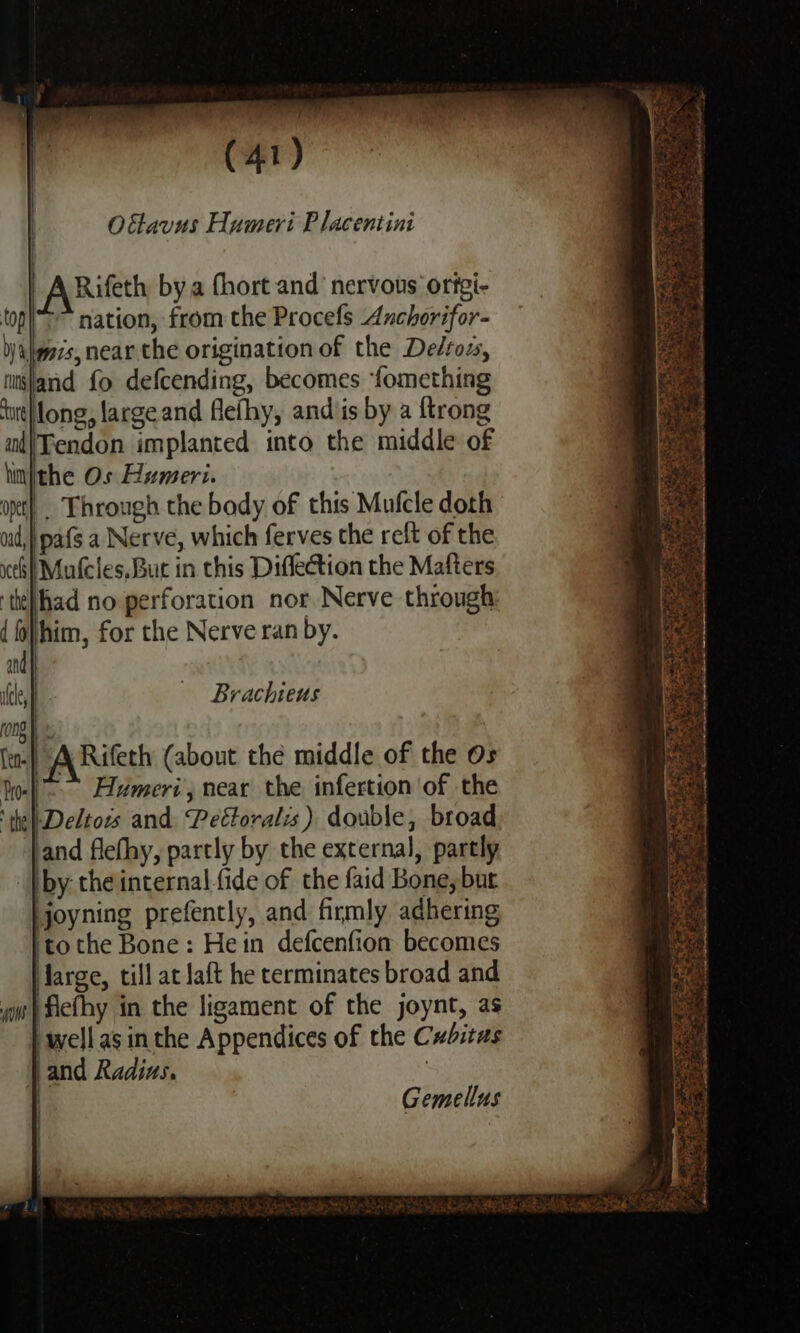 (41)
Octavus Humeri Placentini
ARiſeth by a ſhort and nervous origi-
nation, from the Proceſs Anchorifor-
mis, near the origination of the Deltois,
and ſo deſcending, becomes ſomething
long, large and fleſhy, and is by a ſtrong
Tendon implanted into the middle of
the Os Humeri.
Through the body of this Muſcle doth
paſs a Nerve, which ſerves the reſt of the
Muſcles. But in this Diſſection the Maſters
had no perforation nor Nerve through
him, for the Nerve ran by.
Brachieus
ARiſeth (about the middle of the Os
Humeri, near the inſertion of the
Deltois and Pectoralis) double, broad
and fleſhy, partly by the external, partly
by the internal ſide of the ſaid Bone, but
joyning preſently, and firmly adhering
to the Bone: He in deſcenſion becomes
large, till at laſt he terminates broad and
fleſhy in the ligament of the joynt, as
well as in the Appendices of the Cubitus
and Radius.
Gemellus